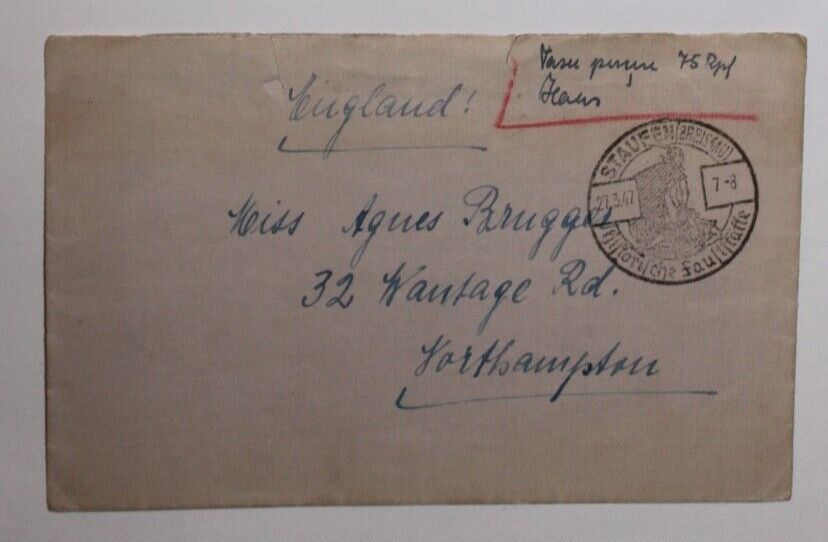 Taxe perçue 75 Rpf
England!
STAUFEN (BREISGAU)
27.3.47
7-8
Historische Fauststätte
Miss Agnes Brugger
32 Wantage Rd.
Northampton